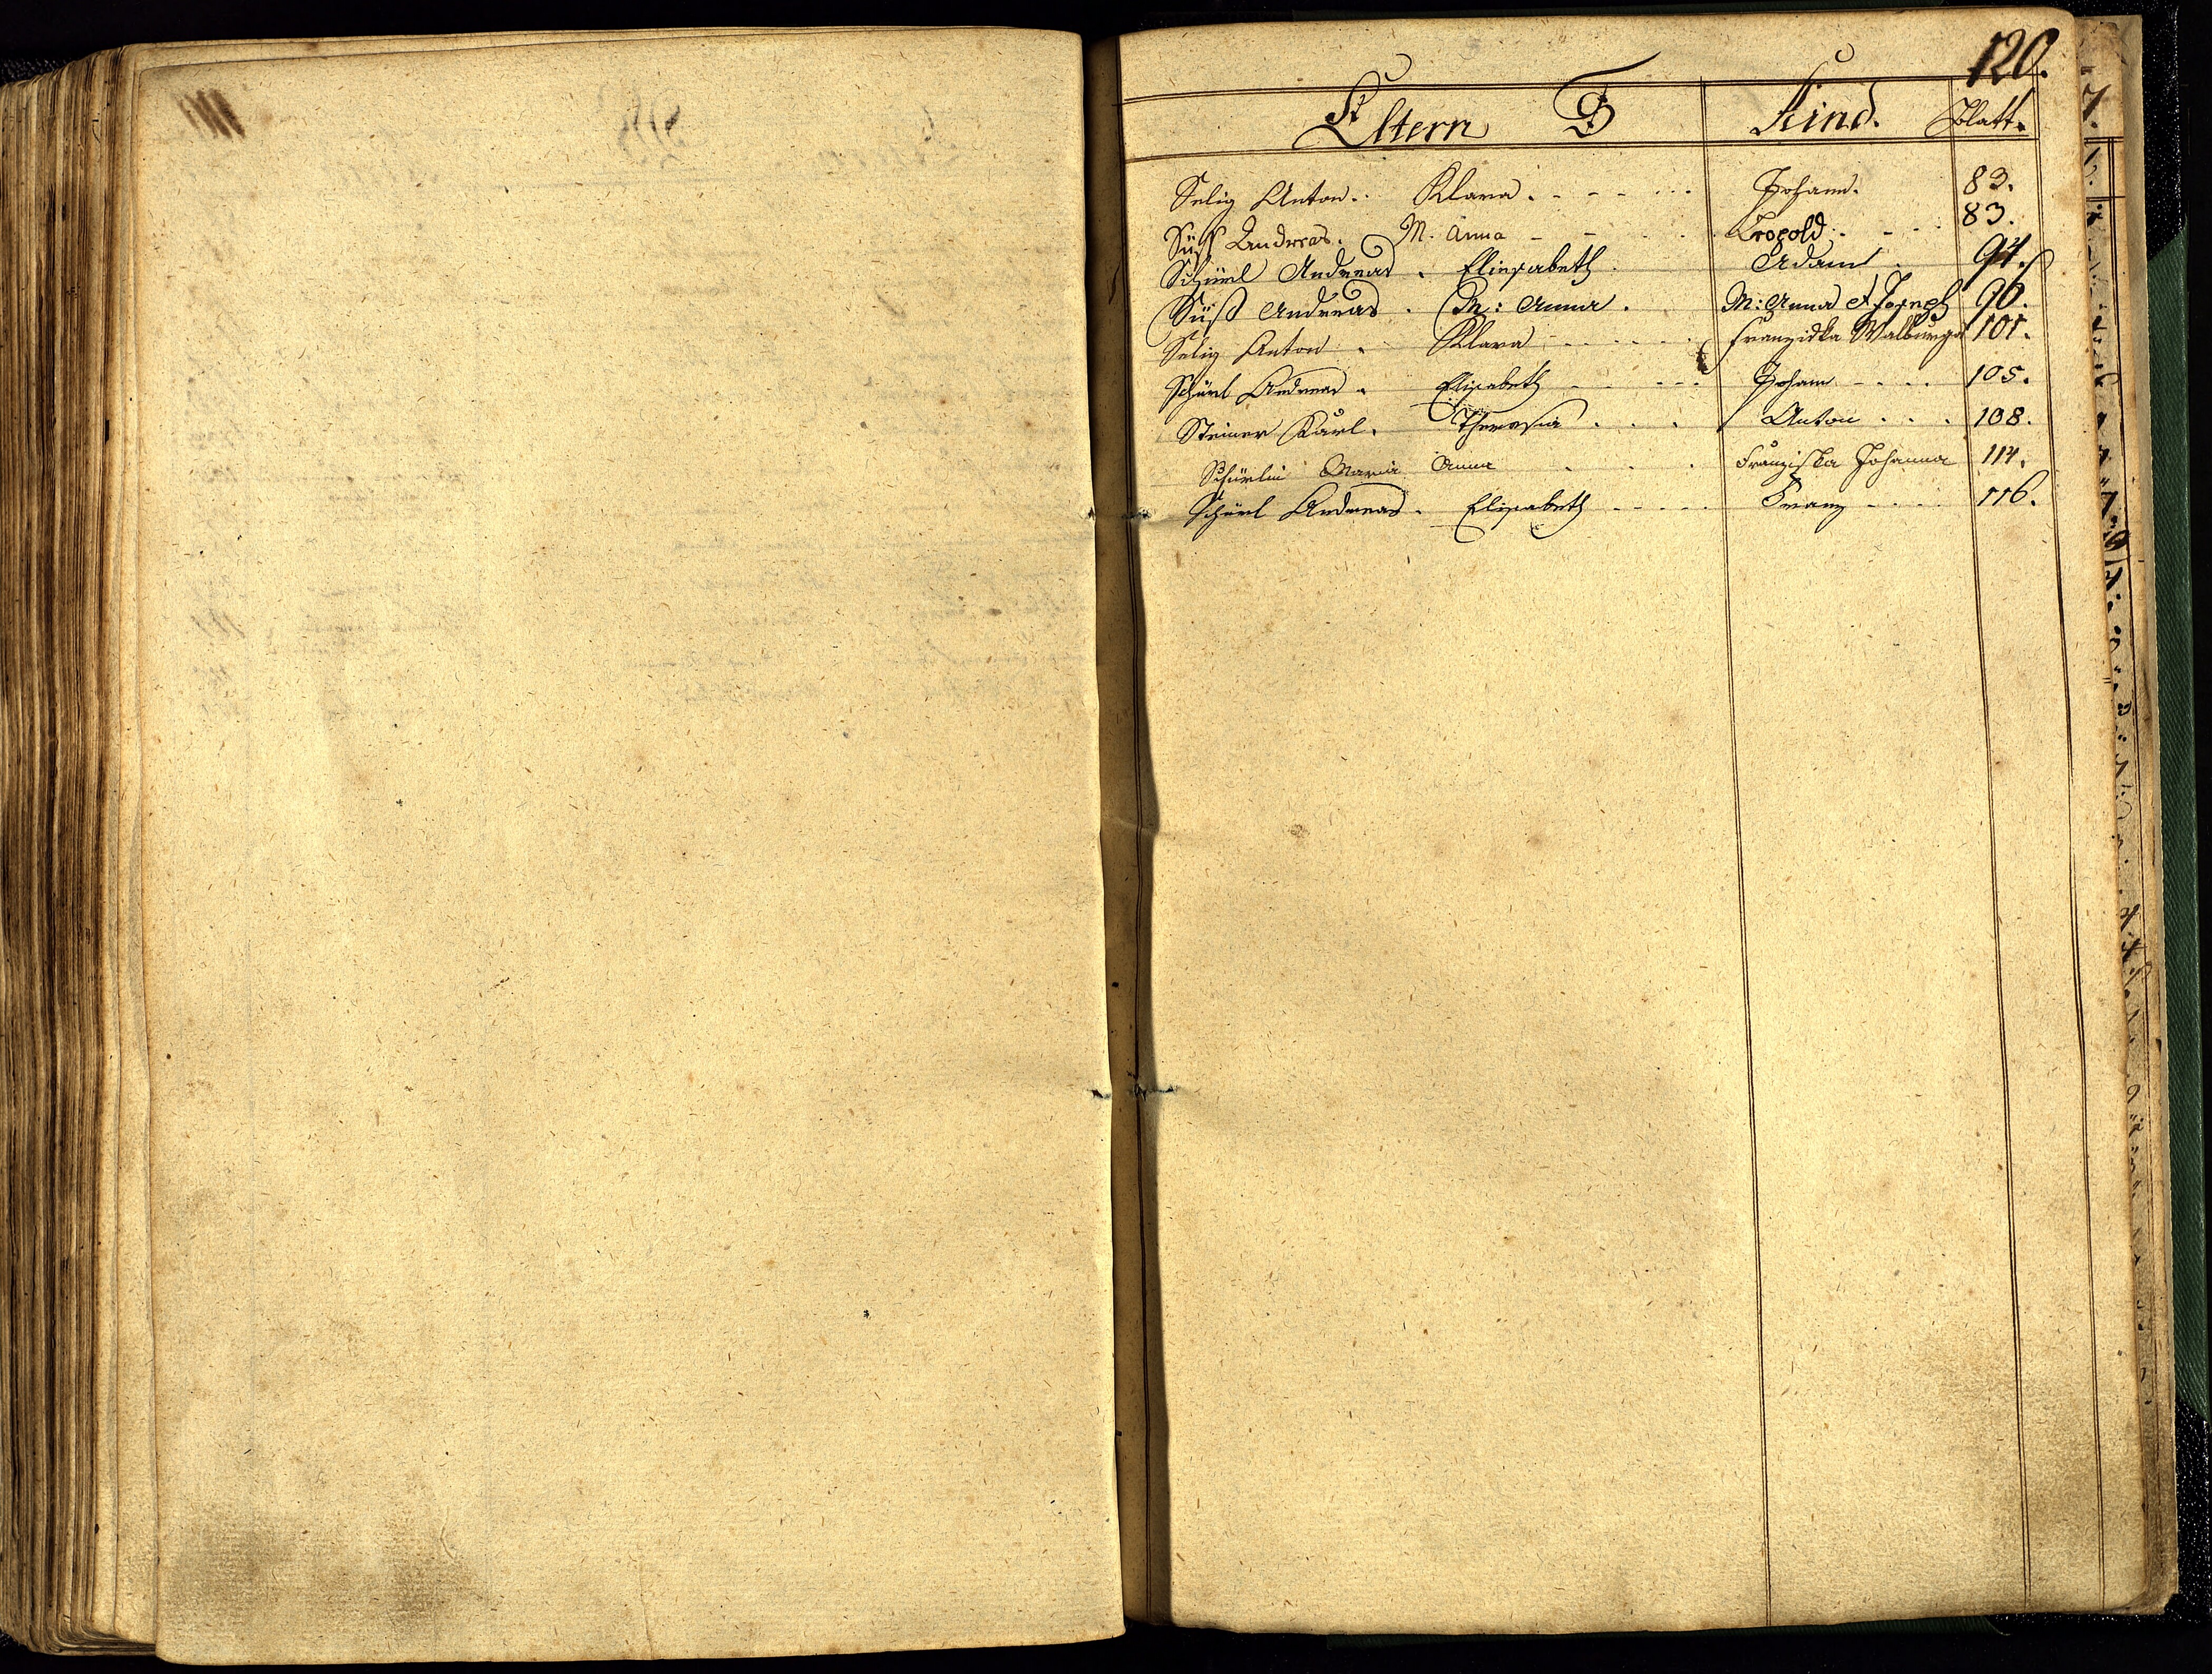 120.
Eltern S Kind. Blatt.
Selig Anton. Klara. Johann. 83.
Süß Andreas. M. Anna Leopold. 83.
Schürl Andreas. Eliesabeth. Adam. 94.
Süß Andreas. M: Anna. M: Anna et Joseph 96.
Selig Anton. Klara Franziska Walburga 101.
Schürl Andreas. Elisabeth Johann 105.
Steiner Karl. Theresia. Anton 108.
Schürlin Maria Anna Franziska Johanna 114.
Schürl Andreas. Elisabeth Franz 116.